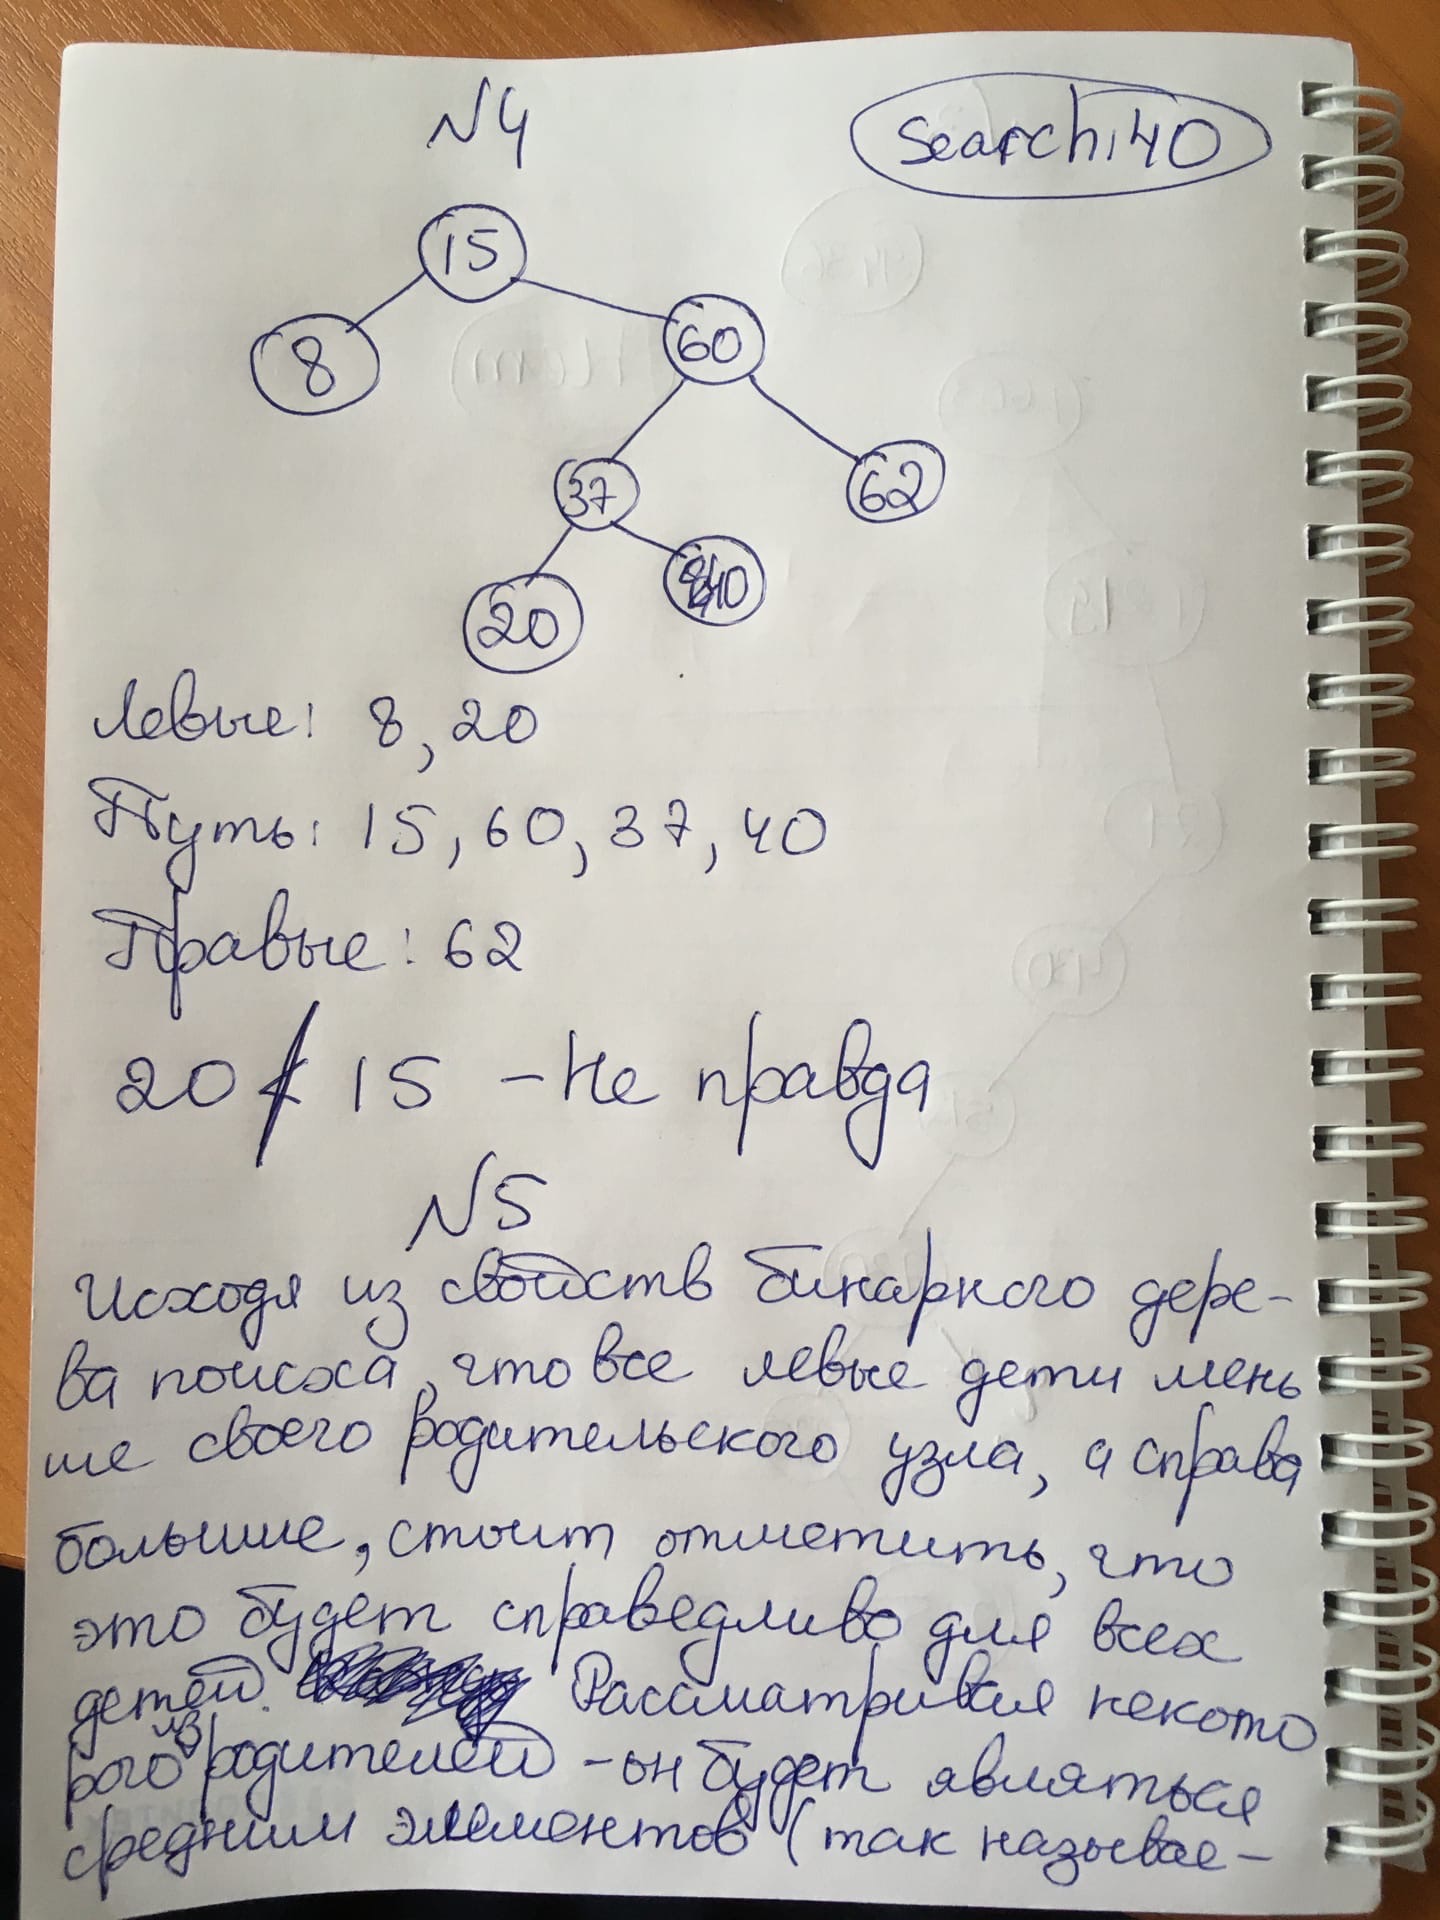 №4
Search: 40
15
8
60
37
62
20
40
Левые: 8, 20
Путь: 15, 60, 37, 40
Правые: 62
20 < 15 - Не правда
№5
Исходя из свойств бинарного дере-
ва поиска, что все левые дети мень
ше своего родительского узла, а справа
больше, стоит отметить, что
это будет справедливо для всех
детей. Рассматривая некото
рого из родителей - он будет являться
средним элементов (так называе-